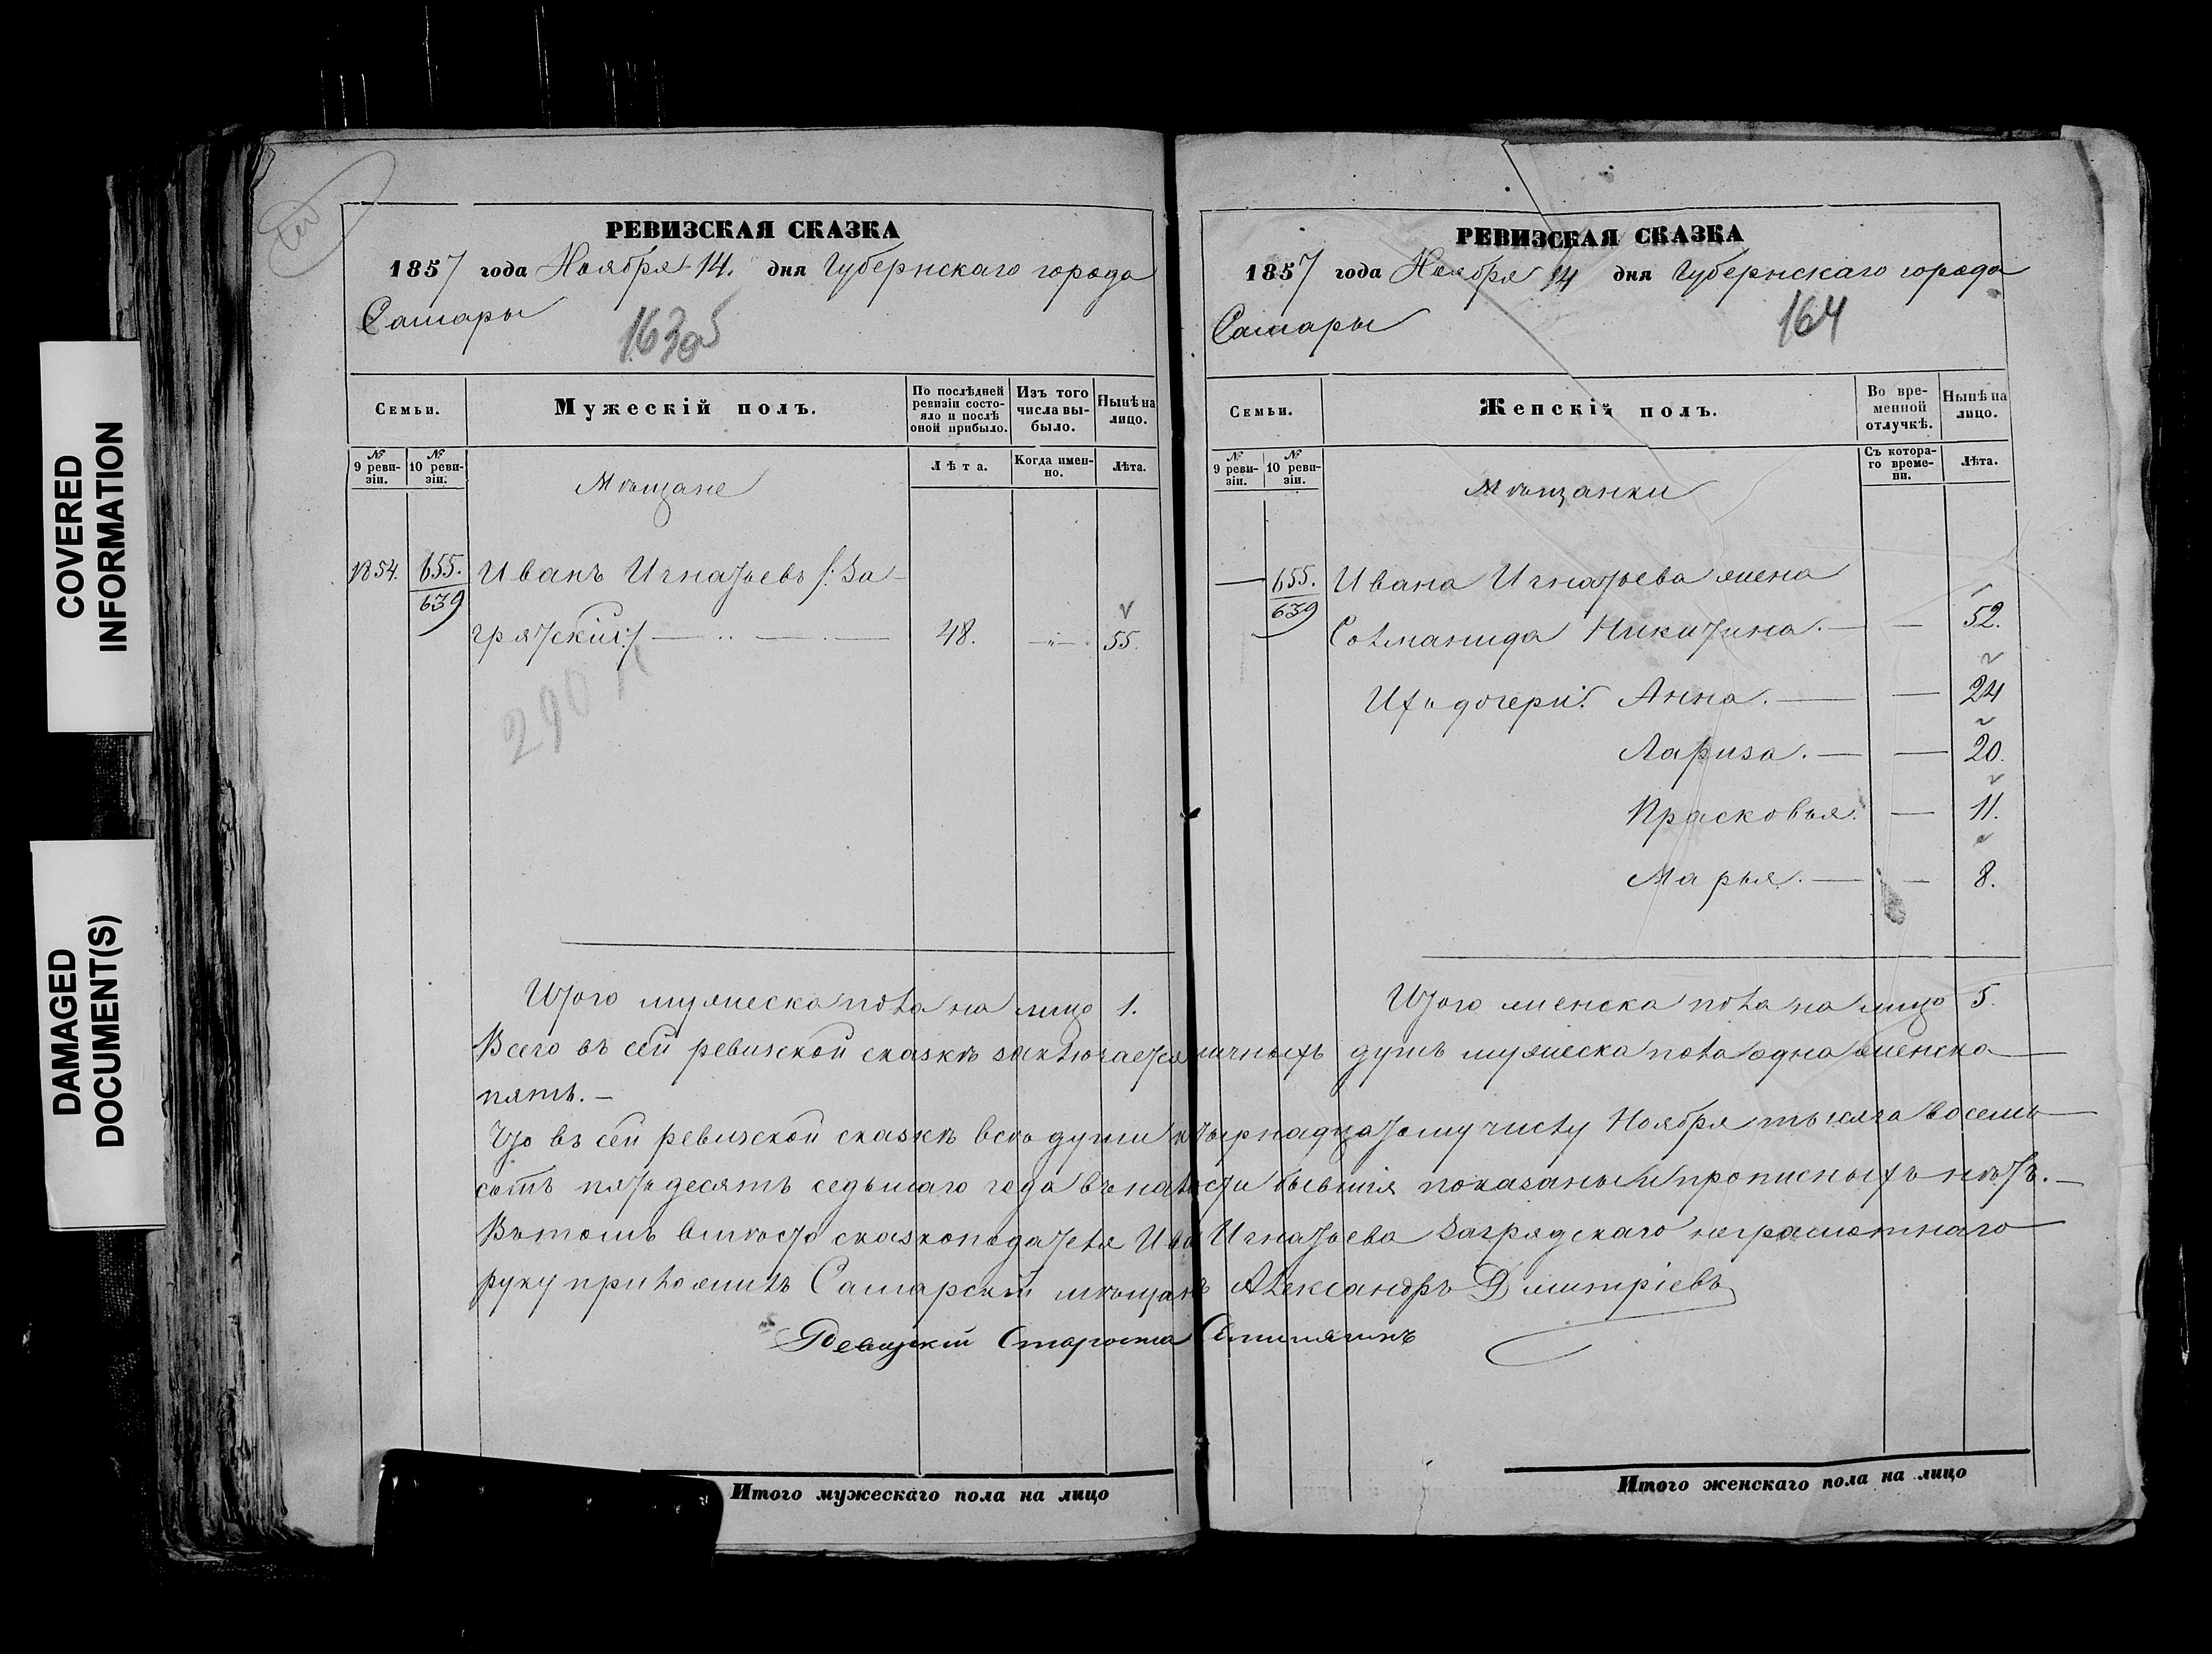 COVERED
INFORMATION
DAMAGED
DOCUMENT(S)
РЕВИЗСКАЯ СКАЗКА
1857 года Ноября 14. дня Губернскаго города
Самары
163об
Семьи.
Мужескій полъ.
По послѣдней ревизіи состояло и послѣ оной прибыло.
Изъ того числа выбыло.
Нынѣ на лицо.
№ 9 ревизіи.
№ 10 ревизіи.
Мѣщане
Лѣта.
Когда именно.
Лѣта.
1854. 655. Иванъ Игнатьевъ /: За-
639
грятскій :/ 48. 55.
290
Итого мужеска пола на лицо 1.
РЕВИЗСКАЯ СКАЗКА
1857 года Ноября 14 дня Губернскаго города
Самары
164
Семьи.
Женскій полъ.
Во временной отлучкѣ.
Нынѣ на лицо.
№ 9 ревизіи.
№ 10 ревизіи.
Мѣщанки
Съ котораго времени.
Лѣта.
— 655. Ивана Игнатьева жена
639
Соломанида Никитина. — — 52.
Ихъ дочери: Анна. — — 24
Лариза. — — 20.
Прасковья. — 11.
Марья. — — 8.
Итого женска пола на лицо 5.
Всего въ сей ревизской сказкѣ заключается личныхъ душъ мужеска пола одна женска —
пять. —
Что въ сей ревизской сказкѣ всѣ души къ четырнадцатому числу Ноября тысяча восемь —
сотъ пятьдесятъ седьмаго года въ налости бывшія показаны и прописныхъ нѣтъ. —
Вътомъ вмѣсто сказкоподателя Ива Игнатьева Загрядскаго неграмотнаго
руку приложилъ Самарскій мѣщанинъ Александръ Дмитріевъ
Староста
Итого мужескаго пола на лицо
Итого женскаго пола на лицо